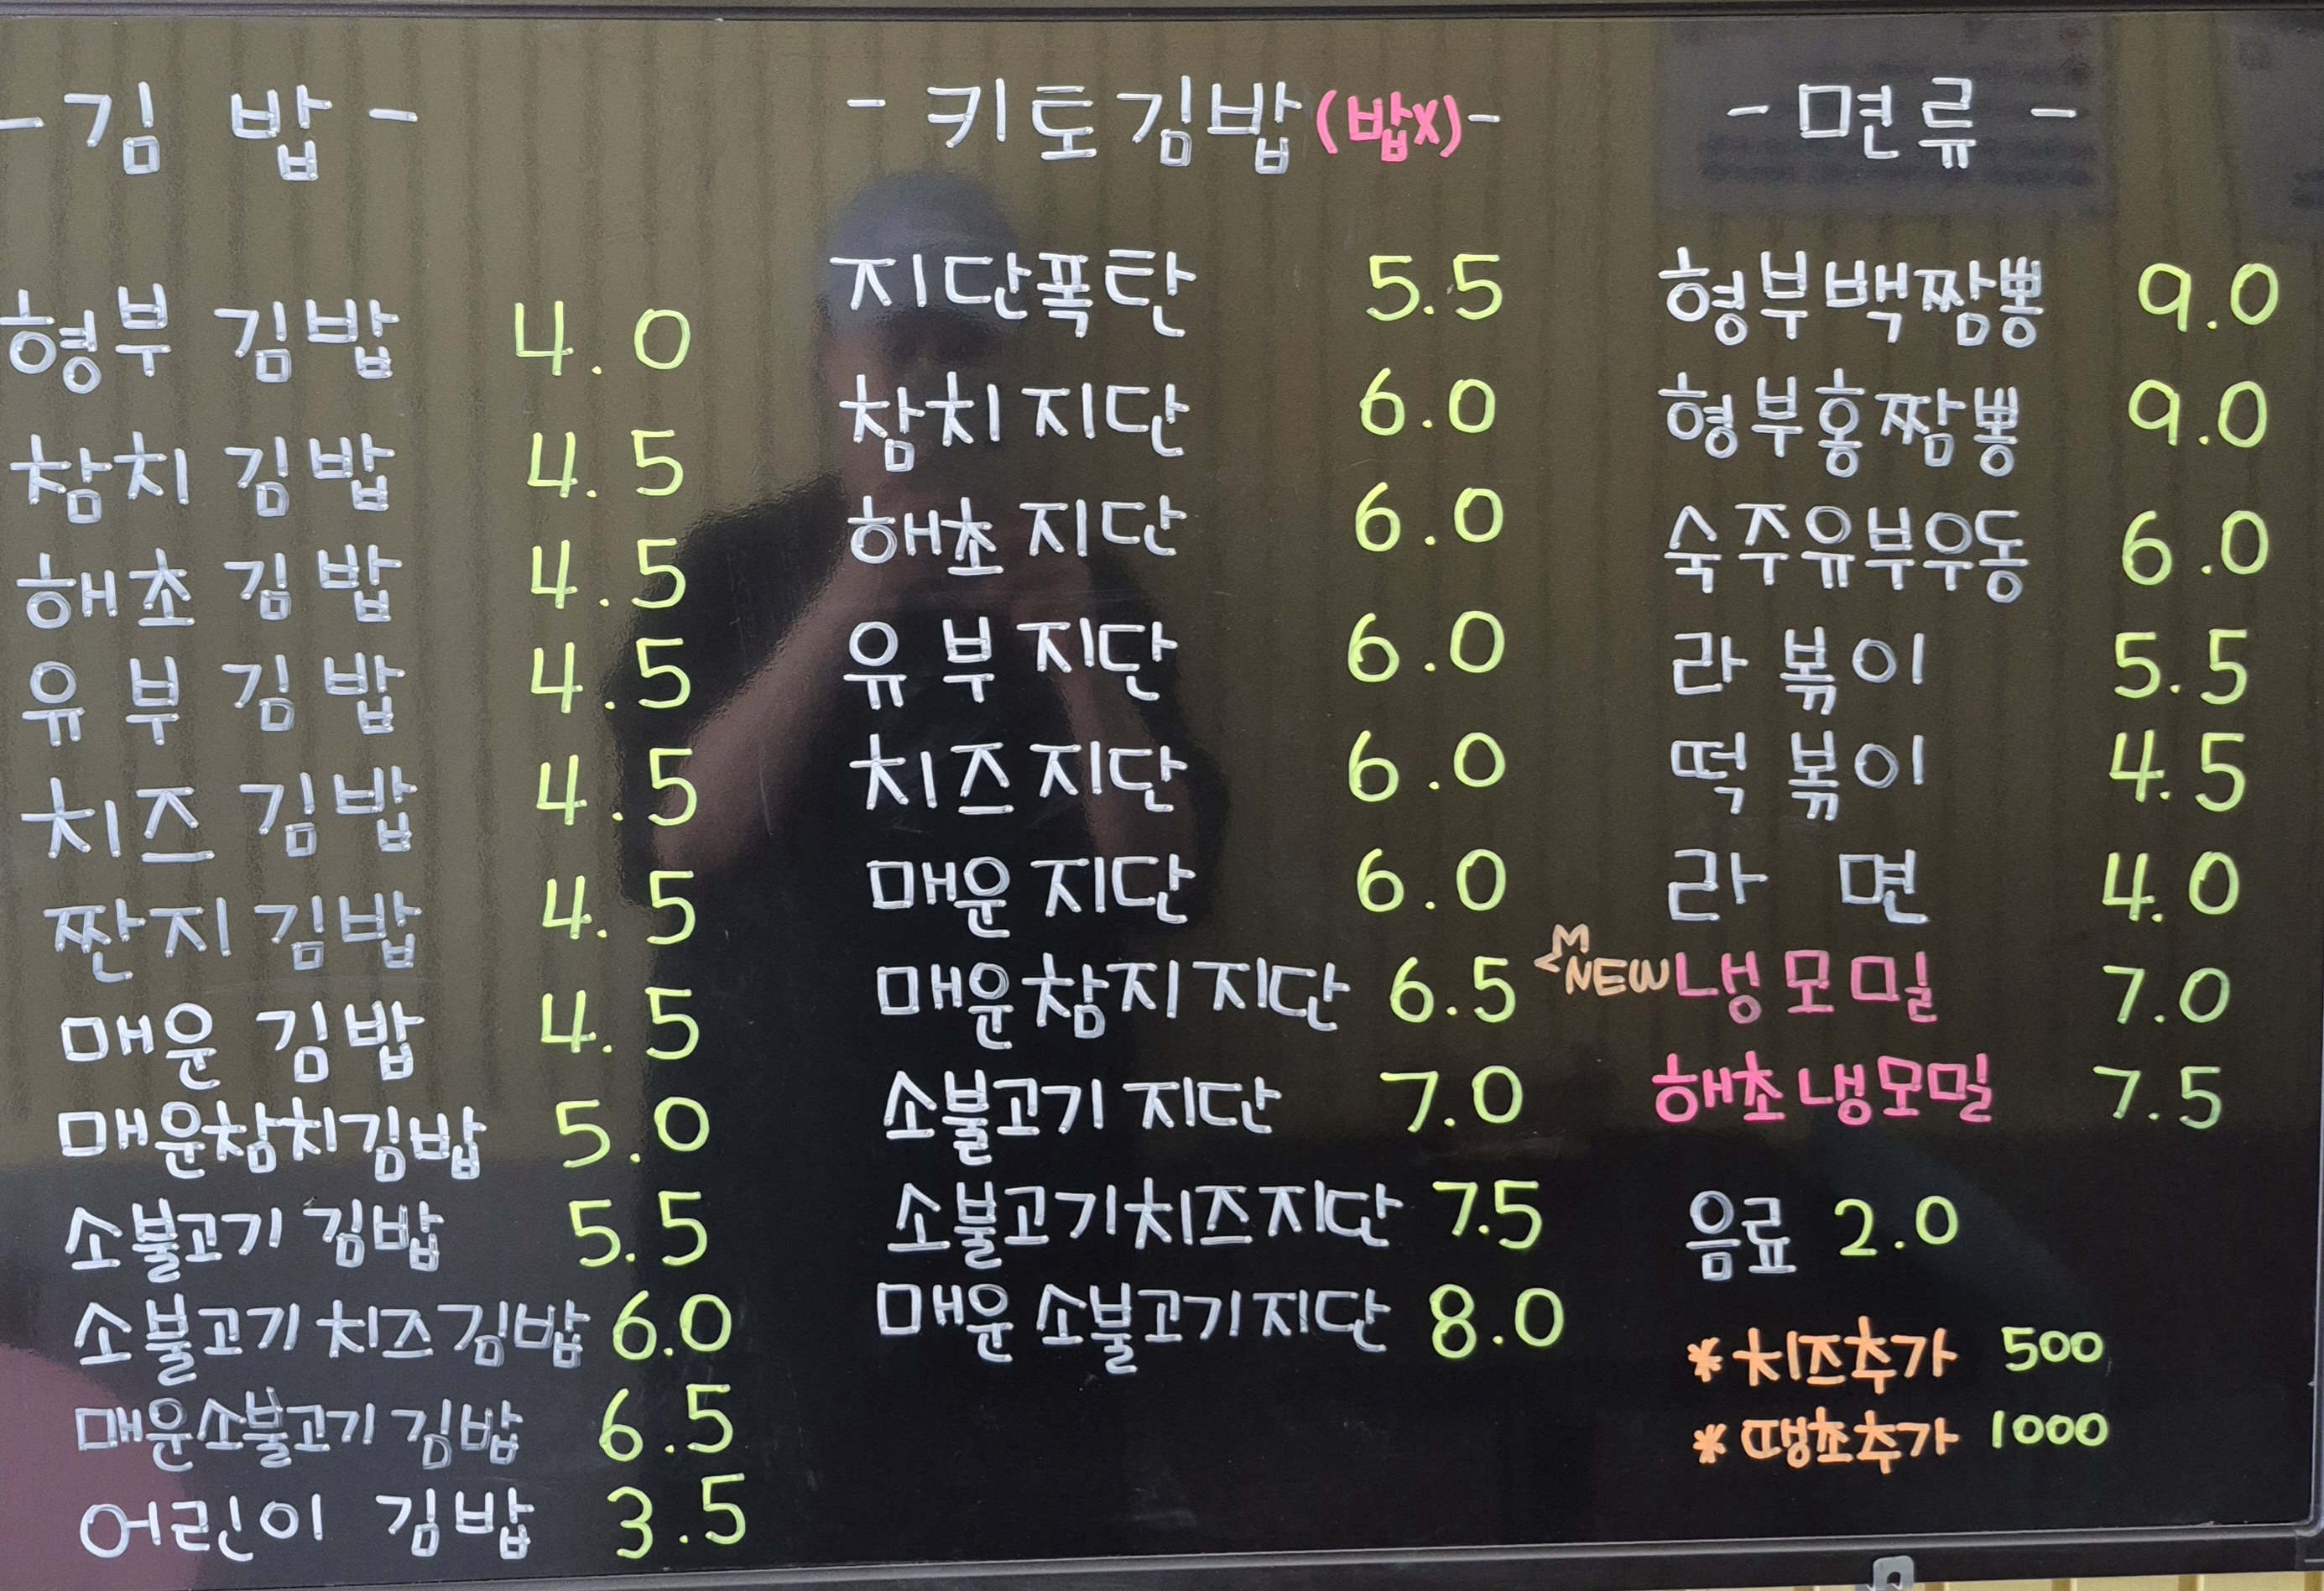 -김 밥-
형부 김밥 4.0
참치 김밥 4.5
해초 김밥 4.5
유부 김밥 4.5
치즈 김밥 4.5
짠지 김밥 4.5
매운 김밥 4.5
매운참치김밥 5.0
소불고기 김밥 5.5
소불고기 치즈 김밥 6.0
매운소불고기 김밥 6.5
어린이 김밥 3.5
- 키토김밥(밥X)-
지단폭탄 5.5
참치 지단 6.0
해초 지단 6.0
유부 지단 6.0
치즈 지단 6.0
매운 지단 6.0
매운참지 지단 6.5
소불고기 지단 7.0
소불고기치즈지단 7.5
매운 소불고기지단 8.0
- 면류 -
형부백짬뽕 9.0
형부홍짬뽕 9.0
숙주유부우동 6.0
라볶이 5.5
떡볶이 4.5
라면 4.0
NEW 냉모밀 7.0
해초냉모밀 7.5
음료 2.0
*치즈추가 500
*땡초추가 1000